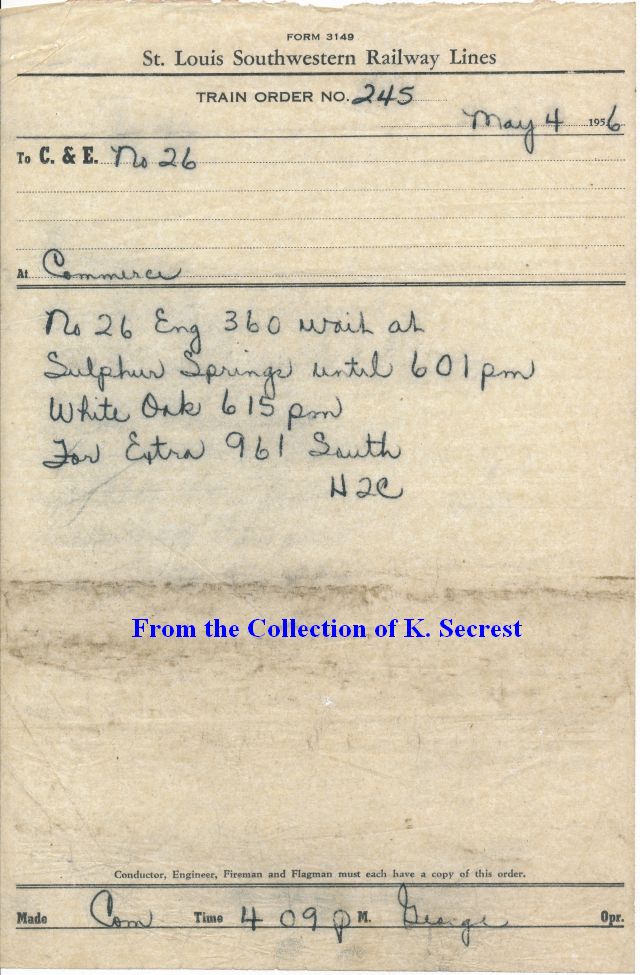 FORM 3149
St. Louis Southwestern Railway Lines
TRAIN ORDER NO. 245
May 4 1956
To C. & E. No 26
At Commerce
No 26 Eng 360 wait at
Sulphur Springs until 601 pm
White Oak 615 pm
For Extra 961 South
H2C
From the Collection of K. Secrest
Conductor, Engineer, Fireman and Flagman must each have a copy of this order.
Made Com Time 4 09 p M. George Opr.